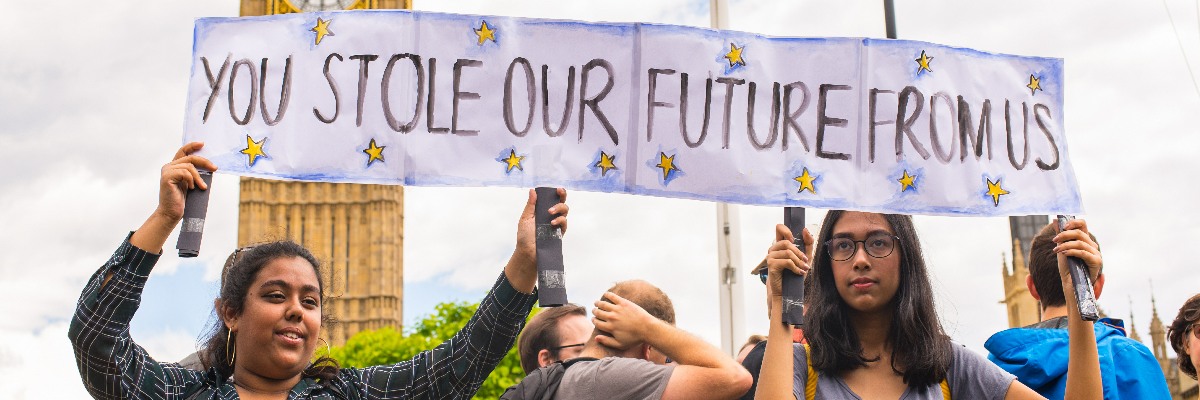 YOU STOLE OUR FUTURE FROM US